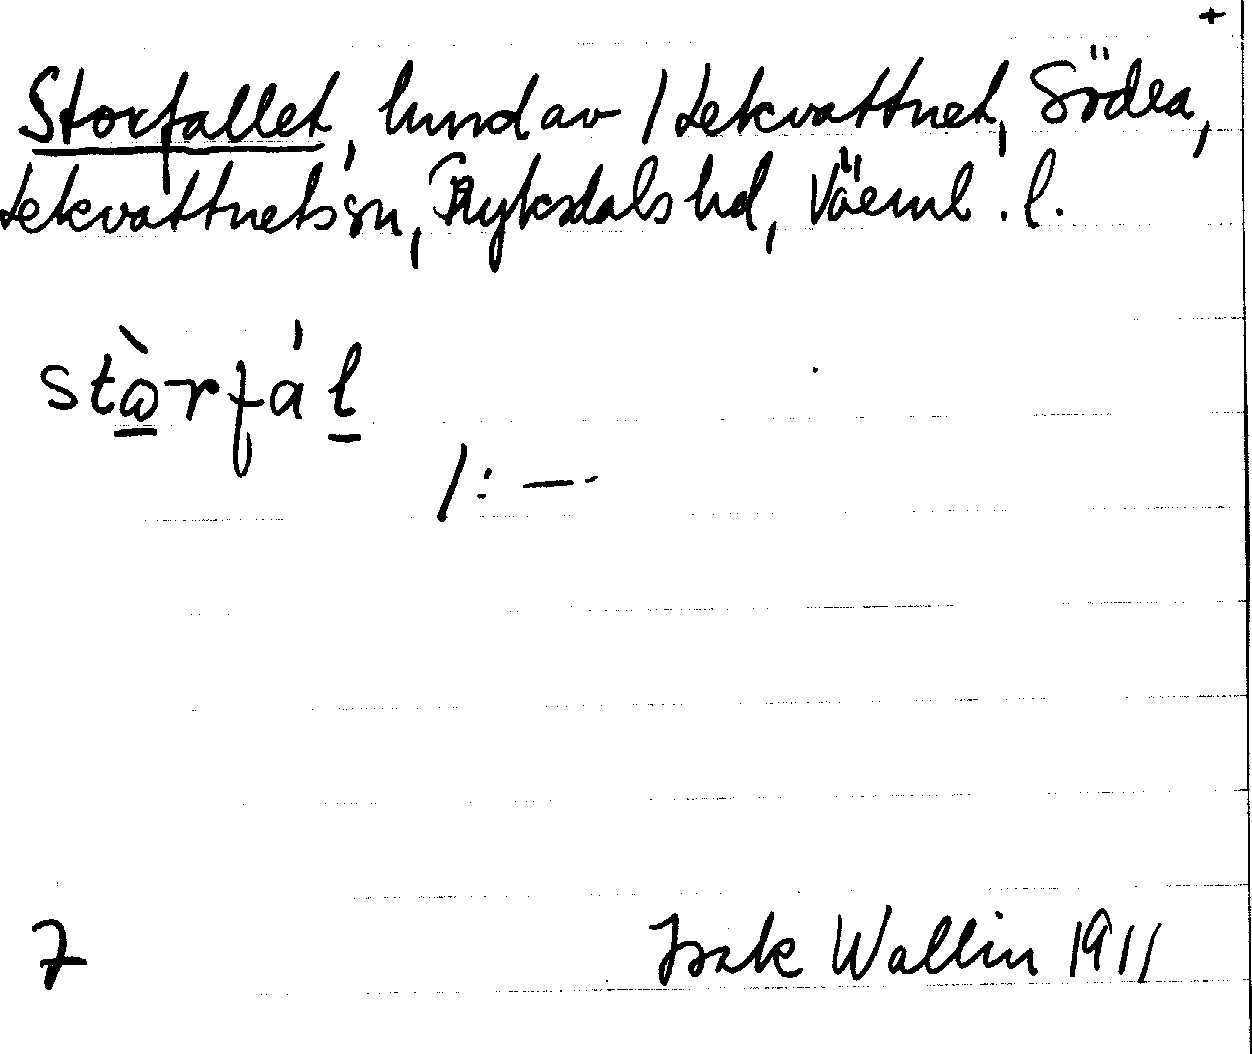 +
Storfallet, lund av / Lekvattnet, Södra,
Lekvattnets sn, Fryksdals hd, Värml. l.
stòrfál
/: —-
7
Isak Wallin 1911